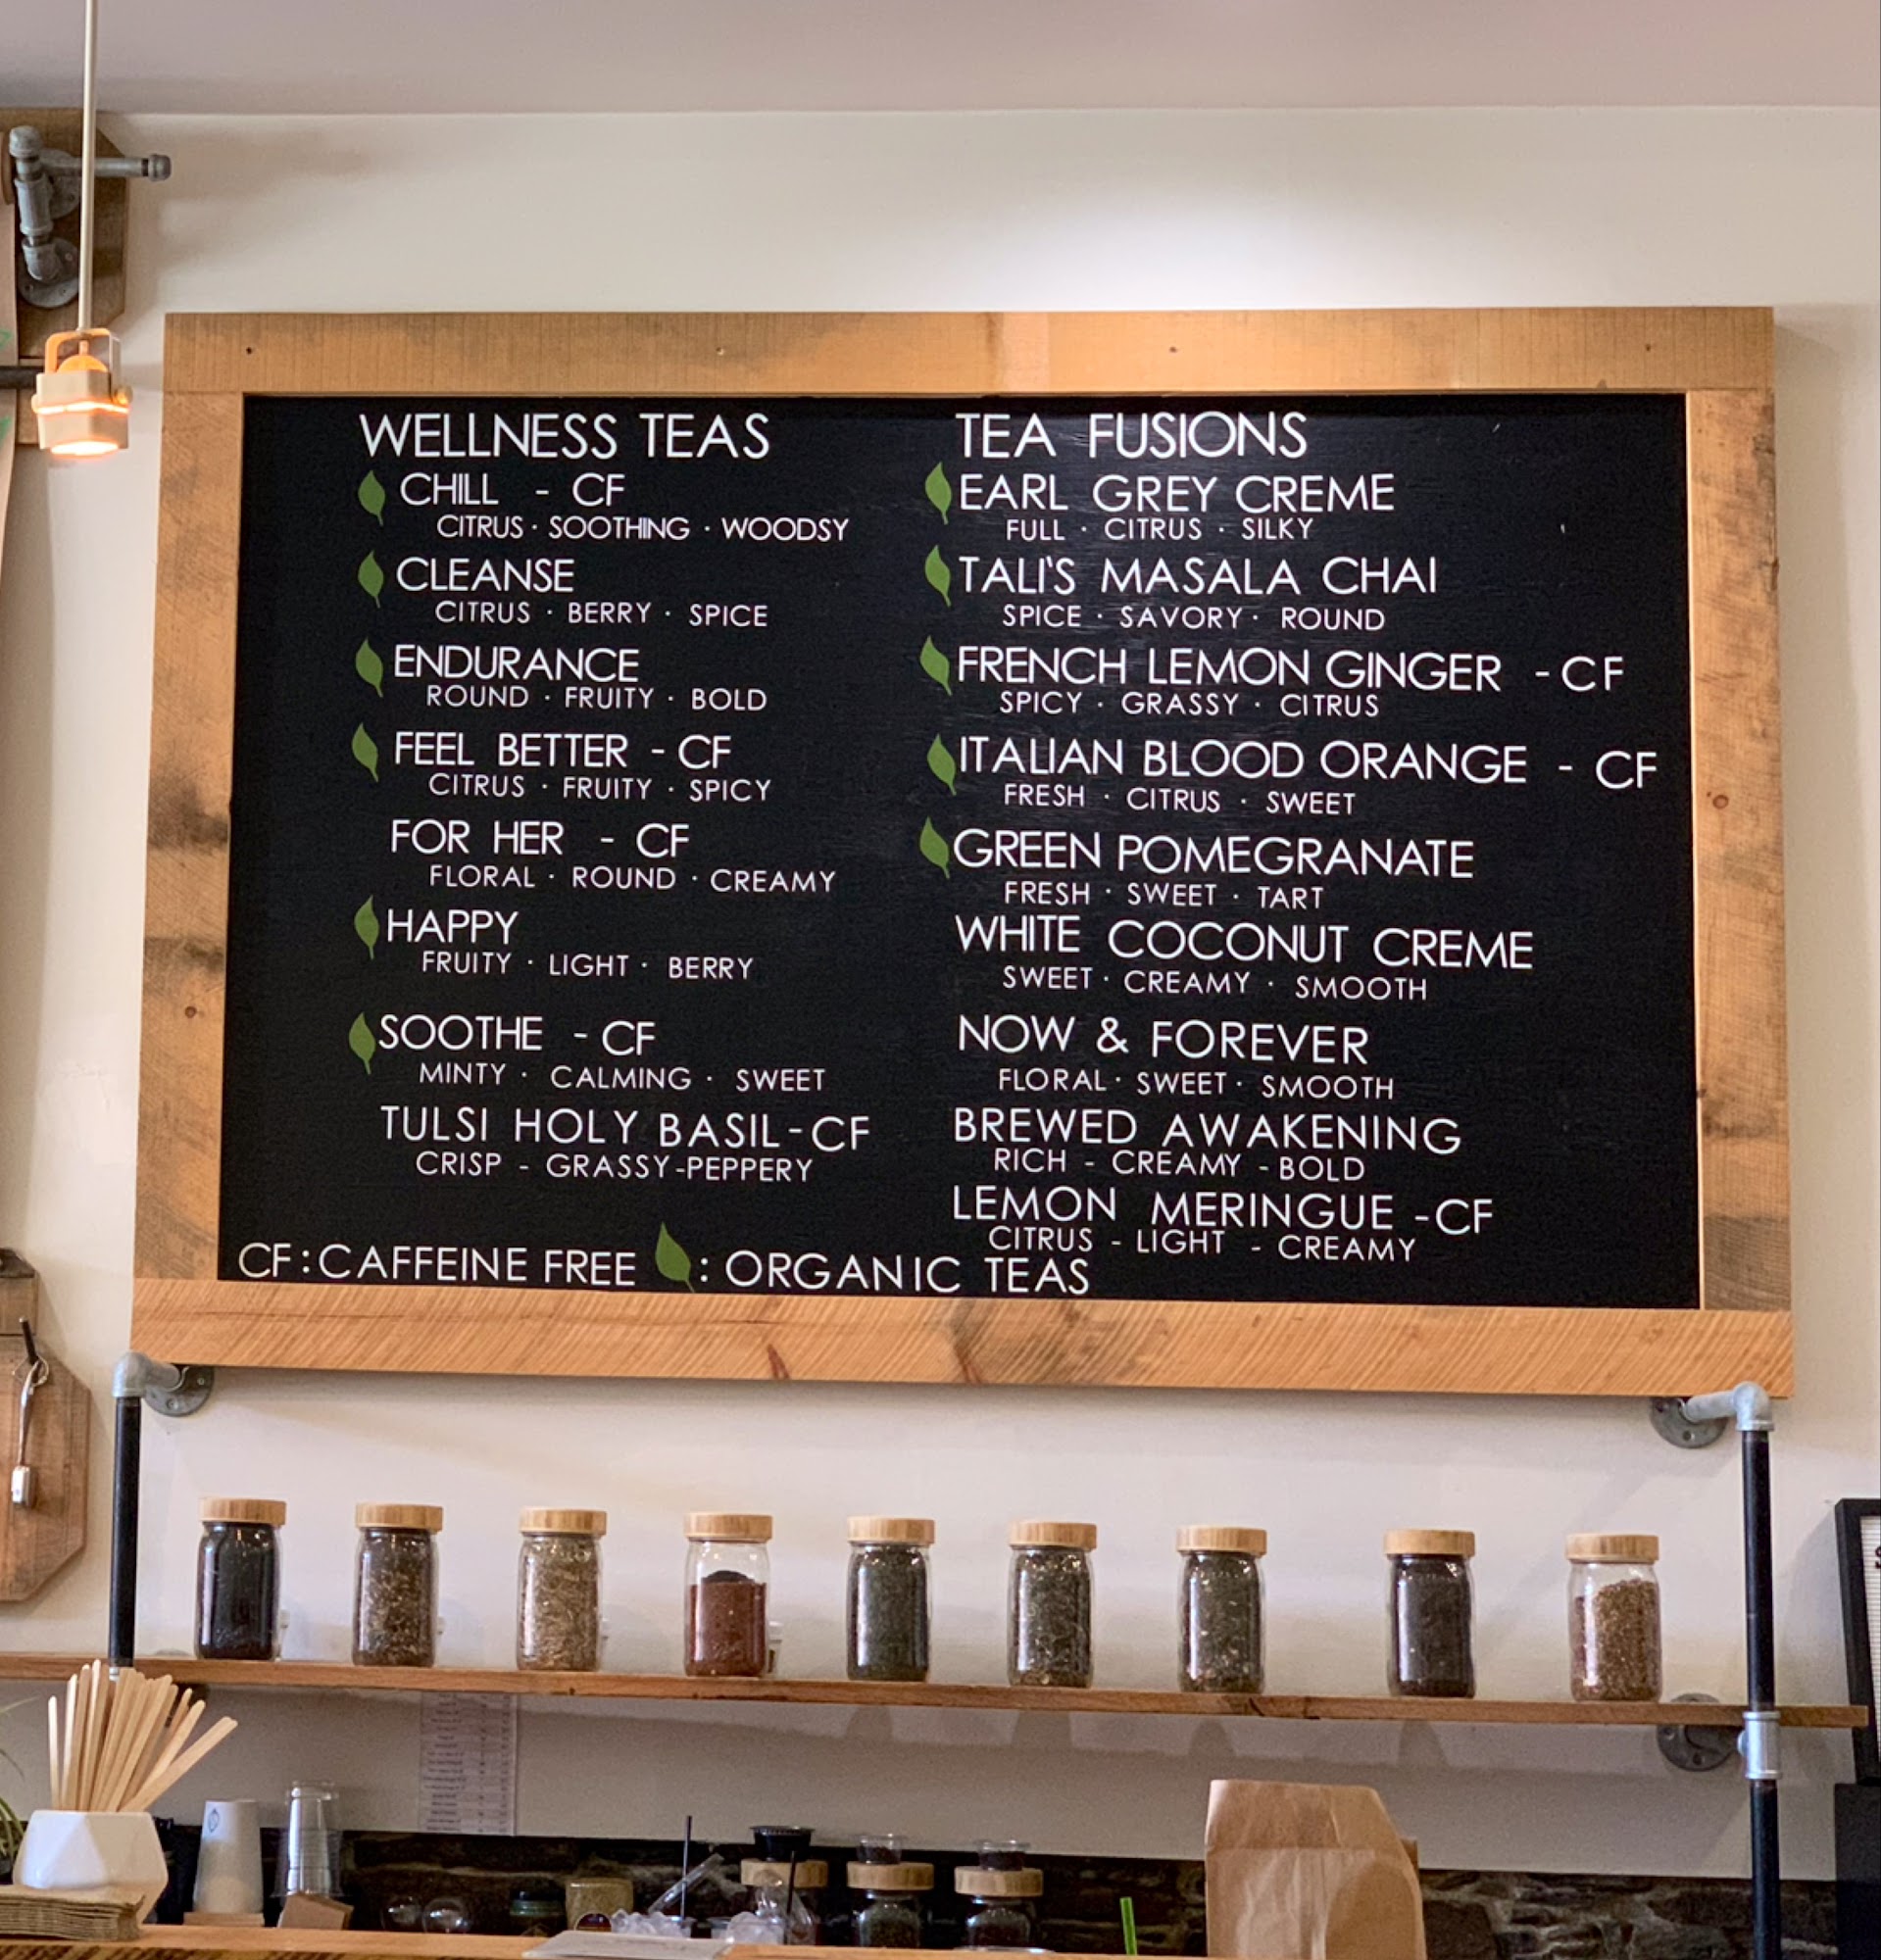 WELLNESS TEAS
CHILL - CF
CITRUS · SOOTHING · WOODSY
CLEANSE
CITRUS · BERRY · SPICE
ENDURANCE
ROUND · FRUITY · BOLD
FEEL BETTER - CF
CITRUS · FRUITY · SPICY
FOR HER - CF
FLORAL · ROUND · CREAMY
HAPPY
FRUITY · LIGHT · BERRY
SOOTHE - CF
MINTY · CALMING · SWEET
TULSI HOLY BASIL-CF
CRISP - GRASSY-PEPPERY
TEA FUSIONS
EARL GREY CREME
FULL · CITRUS · SILKY
TALI'S MASALA CHAI
SPICE · SAVORY · ROUND
FRENCH LEMON GINGER -CF
SPICY · GRASSY · CITRUS
ITALIAN BLOOD ORANGE - CF
FRESH · CITRUS · SWEET
GREEN POMEGRANATE
FRESH · SWEET · TART
WHITE COCONUT CREME
SWEET · CREAMY · SMOOTH
NOW & FOREVER
FLORAL · SWEET · SMOOTH
BREWED AWAKENING
RICH - CREAMY - BOLD
LEMON MERINGUE -CF
CITRUS - LIGHT - CREAMY
CF:CAFFEINE FREE : ORGANIC TEAS